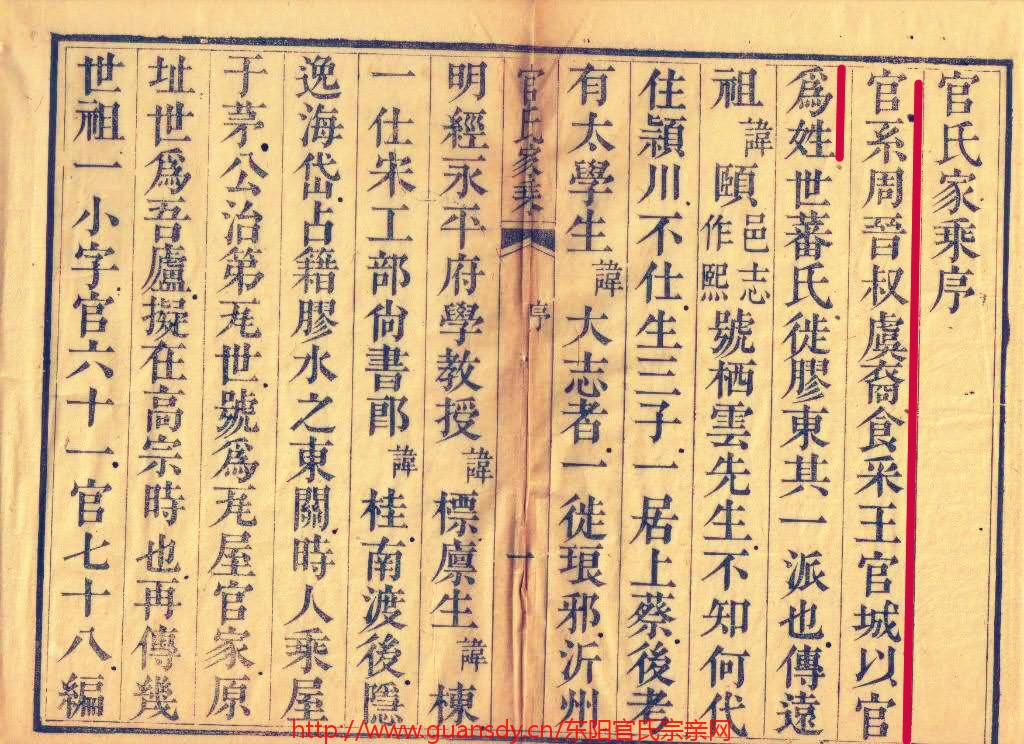 官氏家乘序
官系周晉叔虞裔食采王官城以官
爲姓世蕃氏徙膠東其一派也傳遠
祖諱頤邑志作熙號栖雲先生不知何代
住潁川不仕生三子一居上蔡後考
有太學生諱大志者一徙琅邪沂州
官氏家乘 序 一
明經永平府學教授諱標廪生諱棟
一仕宋工部尚書郎諱桂南渡後隱
逸海岱占籍膠水之東關時人乘屋
于茅公治第瓦世號爲瓦屋官家原
址世爲吾廬擬在高宗時也再傳幾
世祖一小字官六十一官七十八編
http://www.guansdy.cn/东阳官氏宗亲网